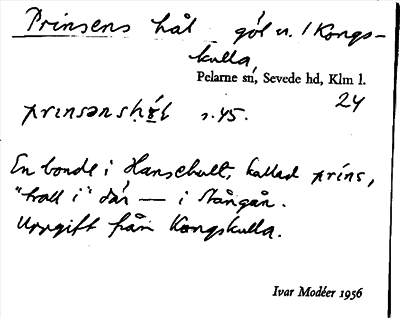 Prinsens hål göl u. / Kongs-
kulla
Pelarne sn, Sevede hd, Klm l.
24
s. 45.
En bonde i Hanschult, kallad prins,
"trall i" där — i Stångån.
Uppgift från Kongskulla.
Ivar Modéer 1956